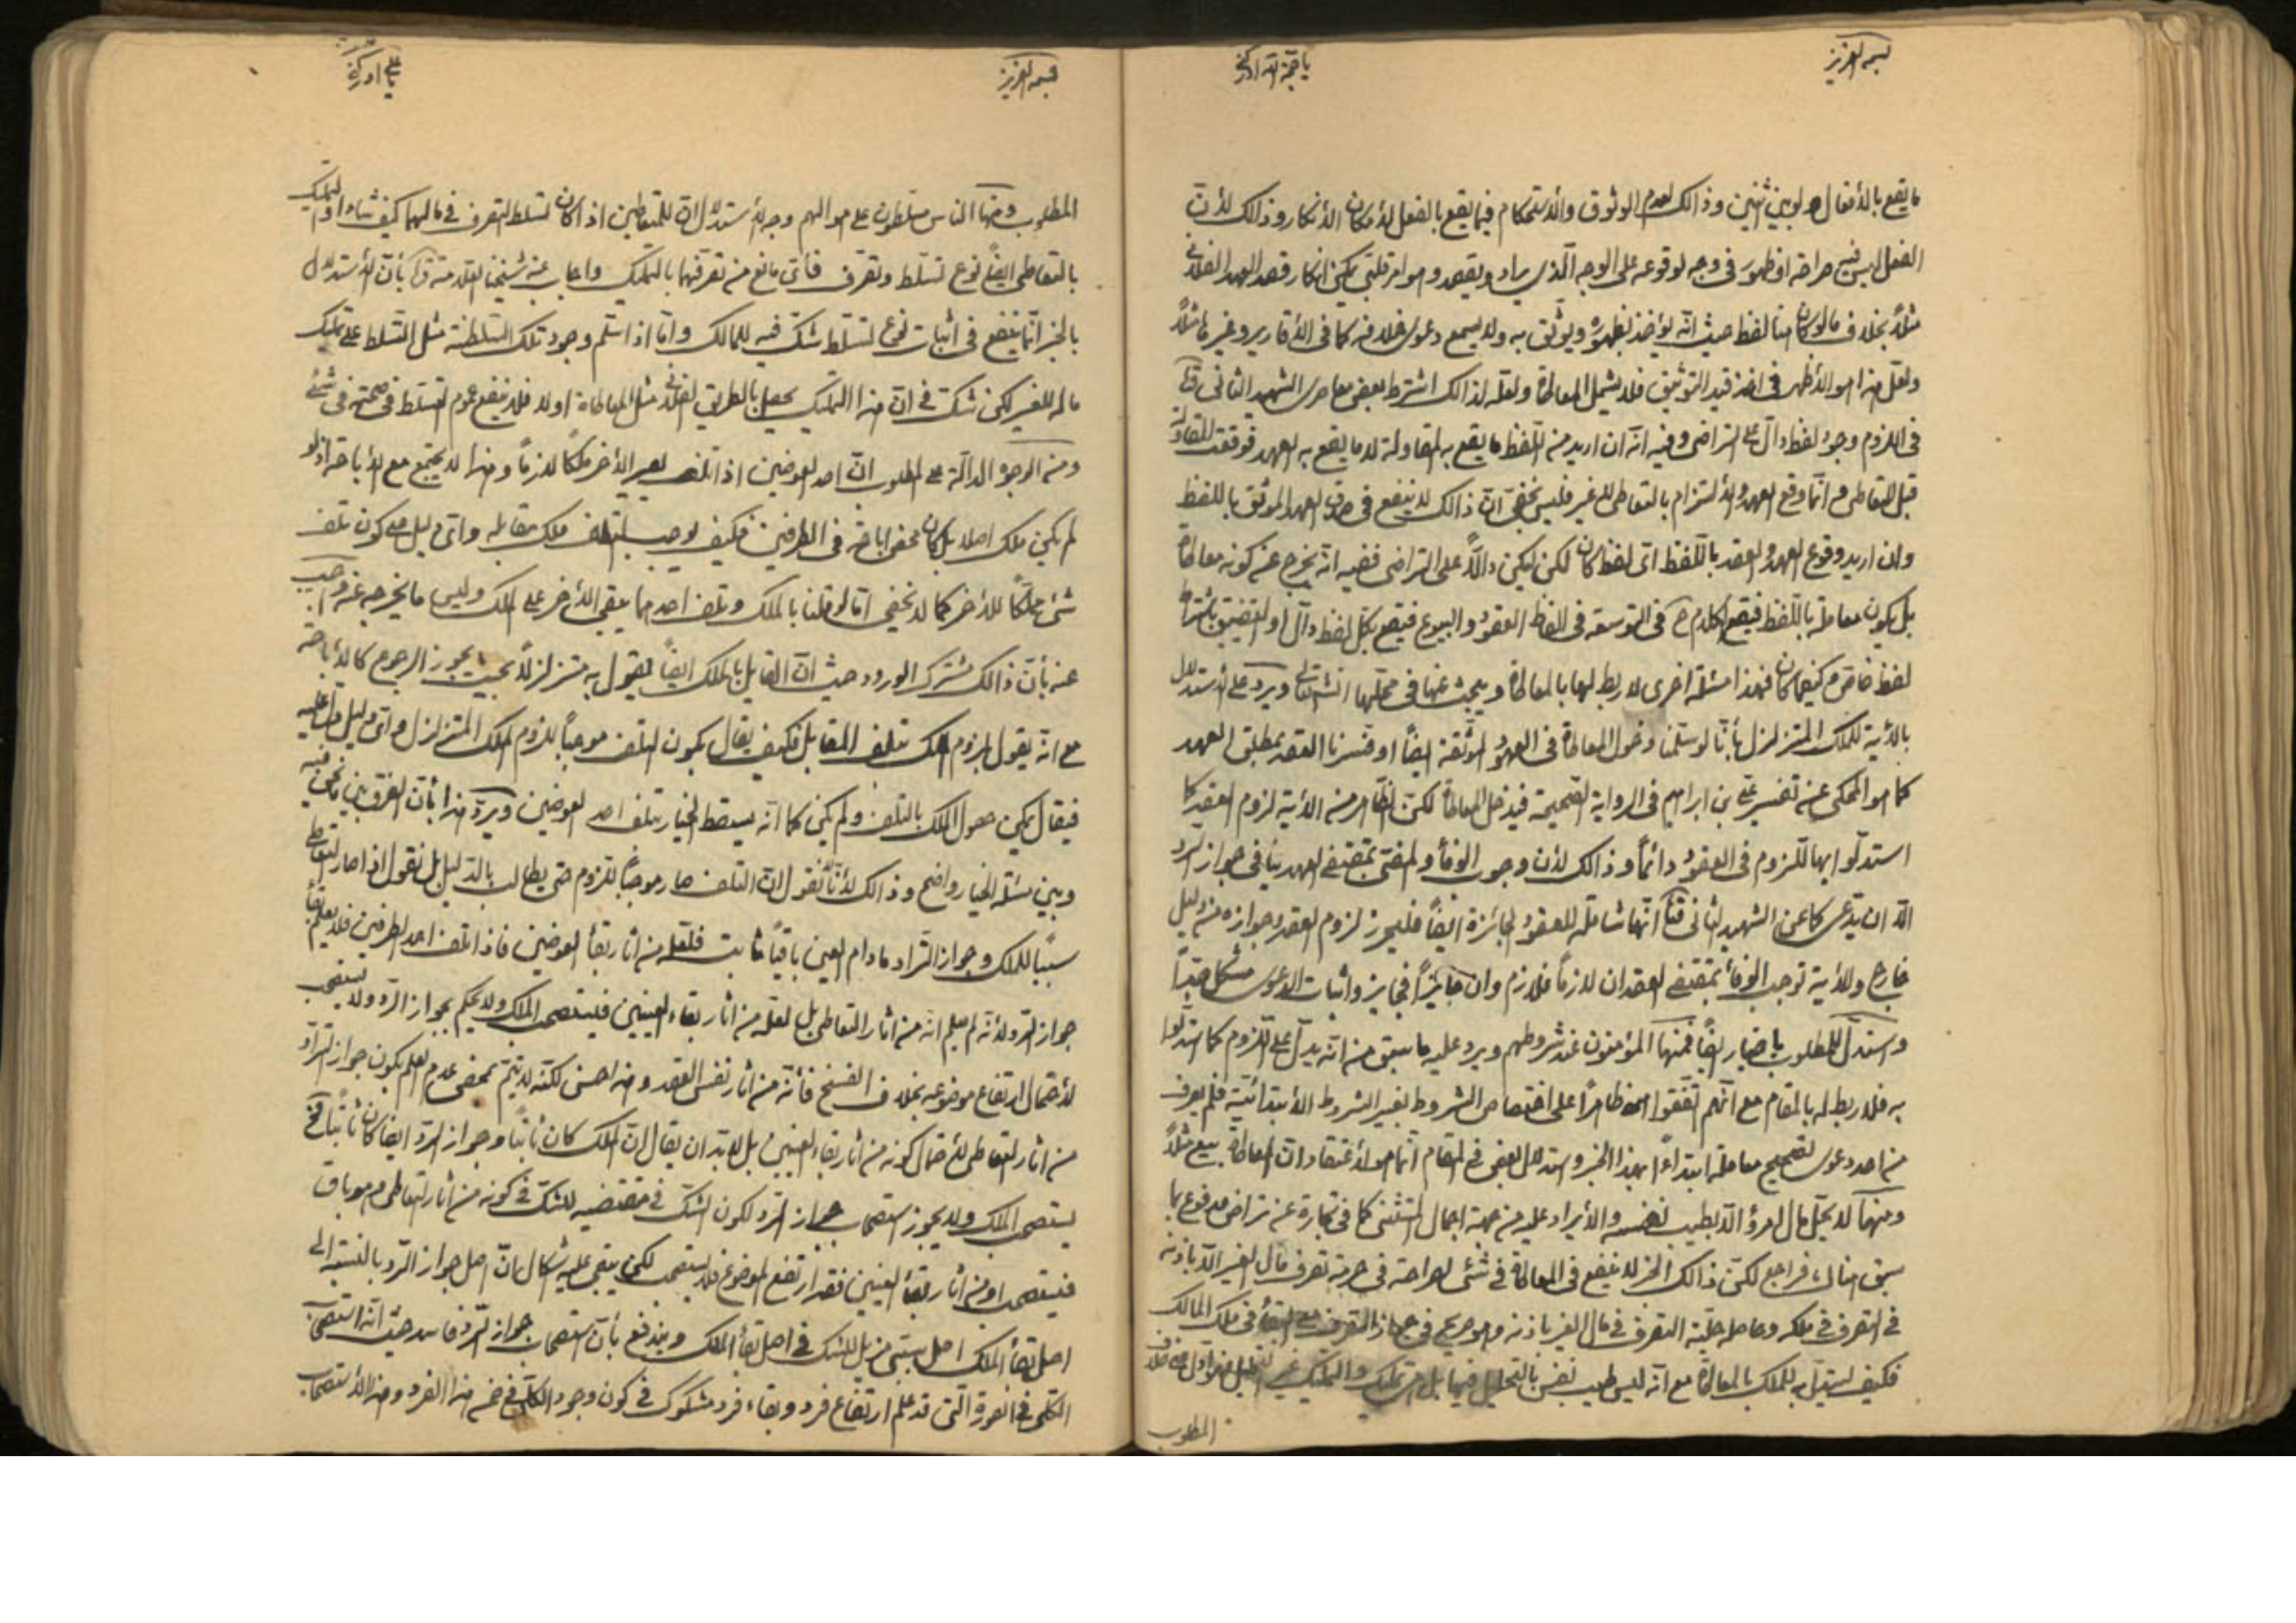 بسمه العزیز
یا حجة الله ادرکنی
ما یقع بالأفعال ولو بین اثنین وذالک لعدم الوثوق والأستحکام فیما یقع بالفعل لأمکان الأنکار وذالک لأن
الفعل لیس فیه صراحة او ظهور فی وجه لوقوعه علی الوجه الذی یراد ویقصد وهو امر قلبی یمکن انکار قصد العهد الفلانی
مثلاً بخلاف ما لو کان هنا لفظ حیث انّه یؤخذ بظهوره ویوثق به ولا یسمع دعوی خلافه کما فی الأقاریر وغیرها مثلاً
ولعلّ هذا هو الأظهر فی اخذ قید التوثیق فلا یشمل المعاطاة ولعله لذالک اشترط بعض معاصری الشهید الثانی
فی اللزوم وجود لفظ دالّ علی التراضی وفیه انّه ان ارید من اللفظ ما یقع به المقاولة لا ما یقع به العهد فوقعت المقاولة
قبل التعاطی وانّما وقع العهد والألتزام بالتعاطی لا غیر فلیس یخفی انّ ذالک لا ینفع فی صدق العهد الموثق باللفظ
وان ارید وقوع العهد والعقد باللفظ ای لفظ کان لکن لیکن دالاً علی التراضی ففیه انّه یخرج عن کونه معاطاة
بل یکون معاملة باللفظ فیقع الکلام ح فی التوسعة فی الفاظ العقود والبیوع فیقع بکل لفظ دالّ او التضییق باشتراط
لفظ خاص وکیفما کان فهذا مسئلة اخری لا ربط لها بالمعاطاة ویبحث عنها فی محلها انشاء الله تعالی ویرد علی الأستدلال
بالأیة للملک المتزلزل بأنّا لو سلّمنا دخول المعاطاة فی العهود الموثقة ایضاً او فسّرنا العقد بمطلق العهد
کما هو المحکی عن تفسیر علی بن ابراهیم فی الروایة الصحیحة فیدخل المعاطاة لکن الظاهر من الأیة لزوم العقد کما
استدلّوا بها للزوم فی العقود دائماً وذالک لأن وجوب الوفأ والمضی بمقتضی العهد ینافی جواز الرد
الّا ان یدّعی کما عن الشهید الثانی انّها شاملة للعقود الجائزة ایضاً فلیحرز لزوم العقد وجوازه من دلیل
خارج والأیة توجب الوفأ بمقتضی العقد ان لازماً فلازم وان جایزاً فجایز واثبات الدعوی مشکل جدّاً
واستدلّ للمطلوب باخبار ایضاً فمنها المؤمنون عند شروطهم ویرد علیه ما سبق من انّه یدلّ علی اللزوم کما استدلّوا
به فلا ربط له بالمقام مع انّهم اتّفقوا ظاهراً علی اختصاص الشروط بغیر الشروط الأبتدائیة فلم یعرف
من احد دعوی تصحیح معاملة ابتداءً بهذا الخبر واستدلال البعض فی المقام انّما هو لأعتقاد ان المعاطاة بیع مثلاً
ومنها لا یحلّ مال امرؤ الّا بطیب نفسه والأیراد علیه من جهة اجمال المستثنی کما فی تجارة عن تراض مدفوع بما
سبق هناک فراجع لکنّ ذالک الخبر لا ینفع فی المعاطاة فی شئی لصراحته فی حرمة تصرف مال الغیر الّا باذنه
فی التصرف فی ملکه وحاصله حلّیة التصرف فی مال الغیر باذنه وهو صریح فی جواز التصرف مع البقأ فی ملک المالک
فکیف یستدلّ به للملک بالمعاطاة مع انّه لیس طیب نفس بالتحلیل فیها بل هو تملیک والتملیک غیر التحلیل
المطلوب
بسمه العزیز
یا علی ادرکنی
المطلوب ومنها الناس مسلطون علی اموالهم وجه الأستدلال انّ للمتعاطین اذا کان تسلط التصرف فی مالهما کیف شاءا والتملیک
بالتعاطی ایضاً نوع تسلط وتصرف فأیّ مانع من تصرفهما بالتملیک واجاب عنه شیخنا العلامة بأنّ الأستدلال
بالخبر انّما ینفع فی اثبات نوع تسلط شک فیه للمالک وامّا اذا سلّم وجود تلک السلطنة مثل التسلط علی تملیک
ماله للغیر لکن شک فی انّ هذا التملیک یحصل بالطریق الفلانی مثل المعاطاة او لا فلا ینفع عموم التسلط فی صحته فی شئ
ومن الوجوه الدالّة علی المطلوب انّ احد العوضین اذا تلف یصیر الأخر ملکاً لازماً وهذا لا یجتمع مع الأباحة اذ لو
لم یکن ملک اصلا بل کان محض اباحة فی الطرفین فکیف یوجب التلف ملک مقابله وای دلیل علی کون تلف
شئ مملّکاً للأخر کما لا یخفی امّا لو قلنا بالملک وتلف احدهما یبقی الأخر علی الملک ولیس ما یخرجه عنه واجیب
عنه بأنّ ذالک مشترک الورود حیث انّ القایل بالملک ایضاً یقول به متزلزلاً بحیث یجوز الرجوع کالأباحة
مع انّه یقول بلزوم الملک بتلف المقابل فکیف یقال بکون التلف موجباً للزوم الملک المتزلزل وایّ دلیل دلّ علیه
فیقال یمکن حصول الملک بالتلف ولم یکن کما انّه یسقط الخیار بتلف احد العوضین ویردّ هذا بأنّ الفرق بین ما نحن فیه
وبین مسئلة الخیار واضح وذالک لأنّا لا نقول انّ التلف صار موجباً للزوم حتی یطالب بالدلیل بل نقول اذا صار التعاطی
سبباً للملک وجواز التراد ما دام العین باقیاً ثابت فلعلّه من اثار بقأ العوضین فاذا تلف احد الطرفین فلا یعلم بقأ
جواز الرد لأنّه لم یعلم انّه من اثار التعاطی بل لعلّه من اثار بقاء العینین فیستصحب الملک ولا یحکم بجواز الرد ولا یستصحب
لأحتمال ارتفاع موضوعه بخلاف الفسخ فأنّه من اثار نفس العقد وهذا حسن لکنّه لا یتمّ بمحض عدم العلم بکون جواز الترادّ
من اثار التعاطی لأحتمال کونه من اثار بقاء العینین بل لا بدّ ان یقال انّ الملک کان ثابتاً وجواز الردّ ایضا کان ثابتاً فح
یستصحب الملک ولا یجوز استصحاب جواز الرد لکون الشک فی مقتضیه للشک فی کونه من اثار التعاطی وهو باق
فیستصحب او من اثار بقأ العینین فقد ارتفع الموضوع فلا یستصحب لکن یبقی علیه اشکال بانّ اصل جواز الردّ بالنسبة الی
اصل بقأ الملک اصل سببی مزیل للشک فی اصل بقأ الملک ویندفع بأنّ استصحاب جواز الردّ فاسد حیث انّه استصحاب
الکلّی فی الصورة الّتی قد علم ارتفاع فرد وبقاء فرد مشکوک فی کون وجود الکلّی فی ضمن هذا الفرد وهذا الأستصحاب